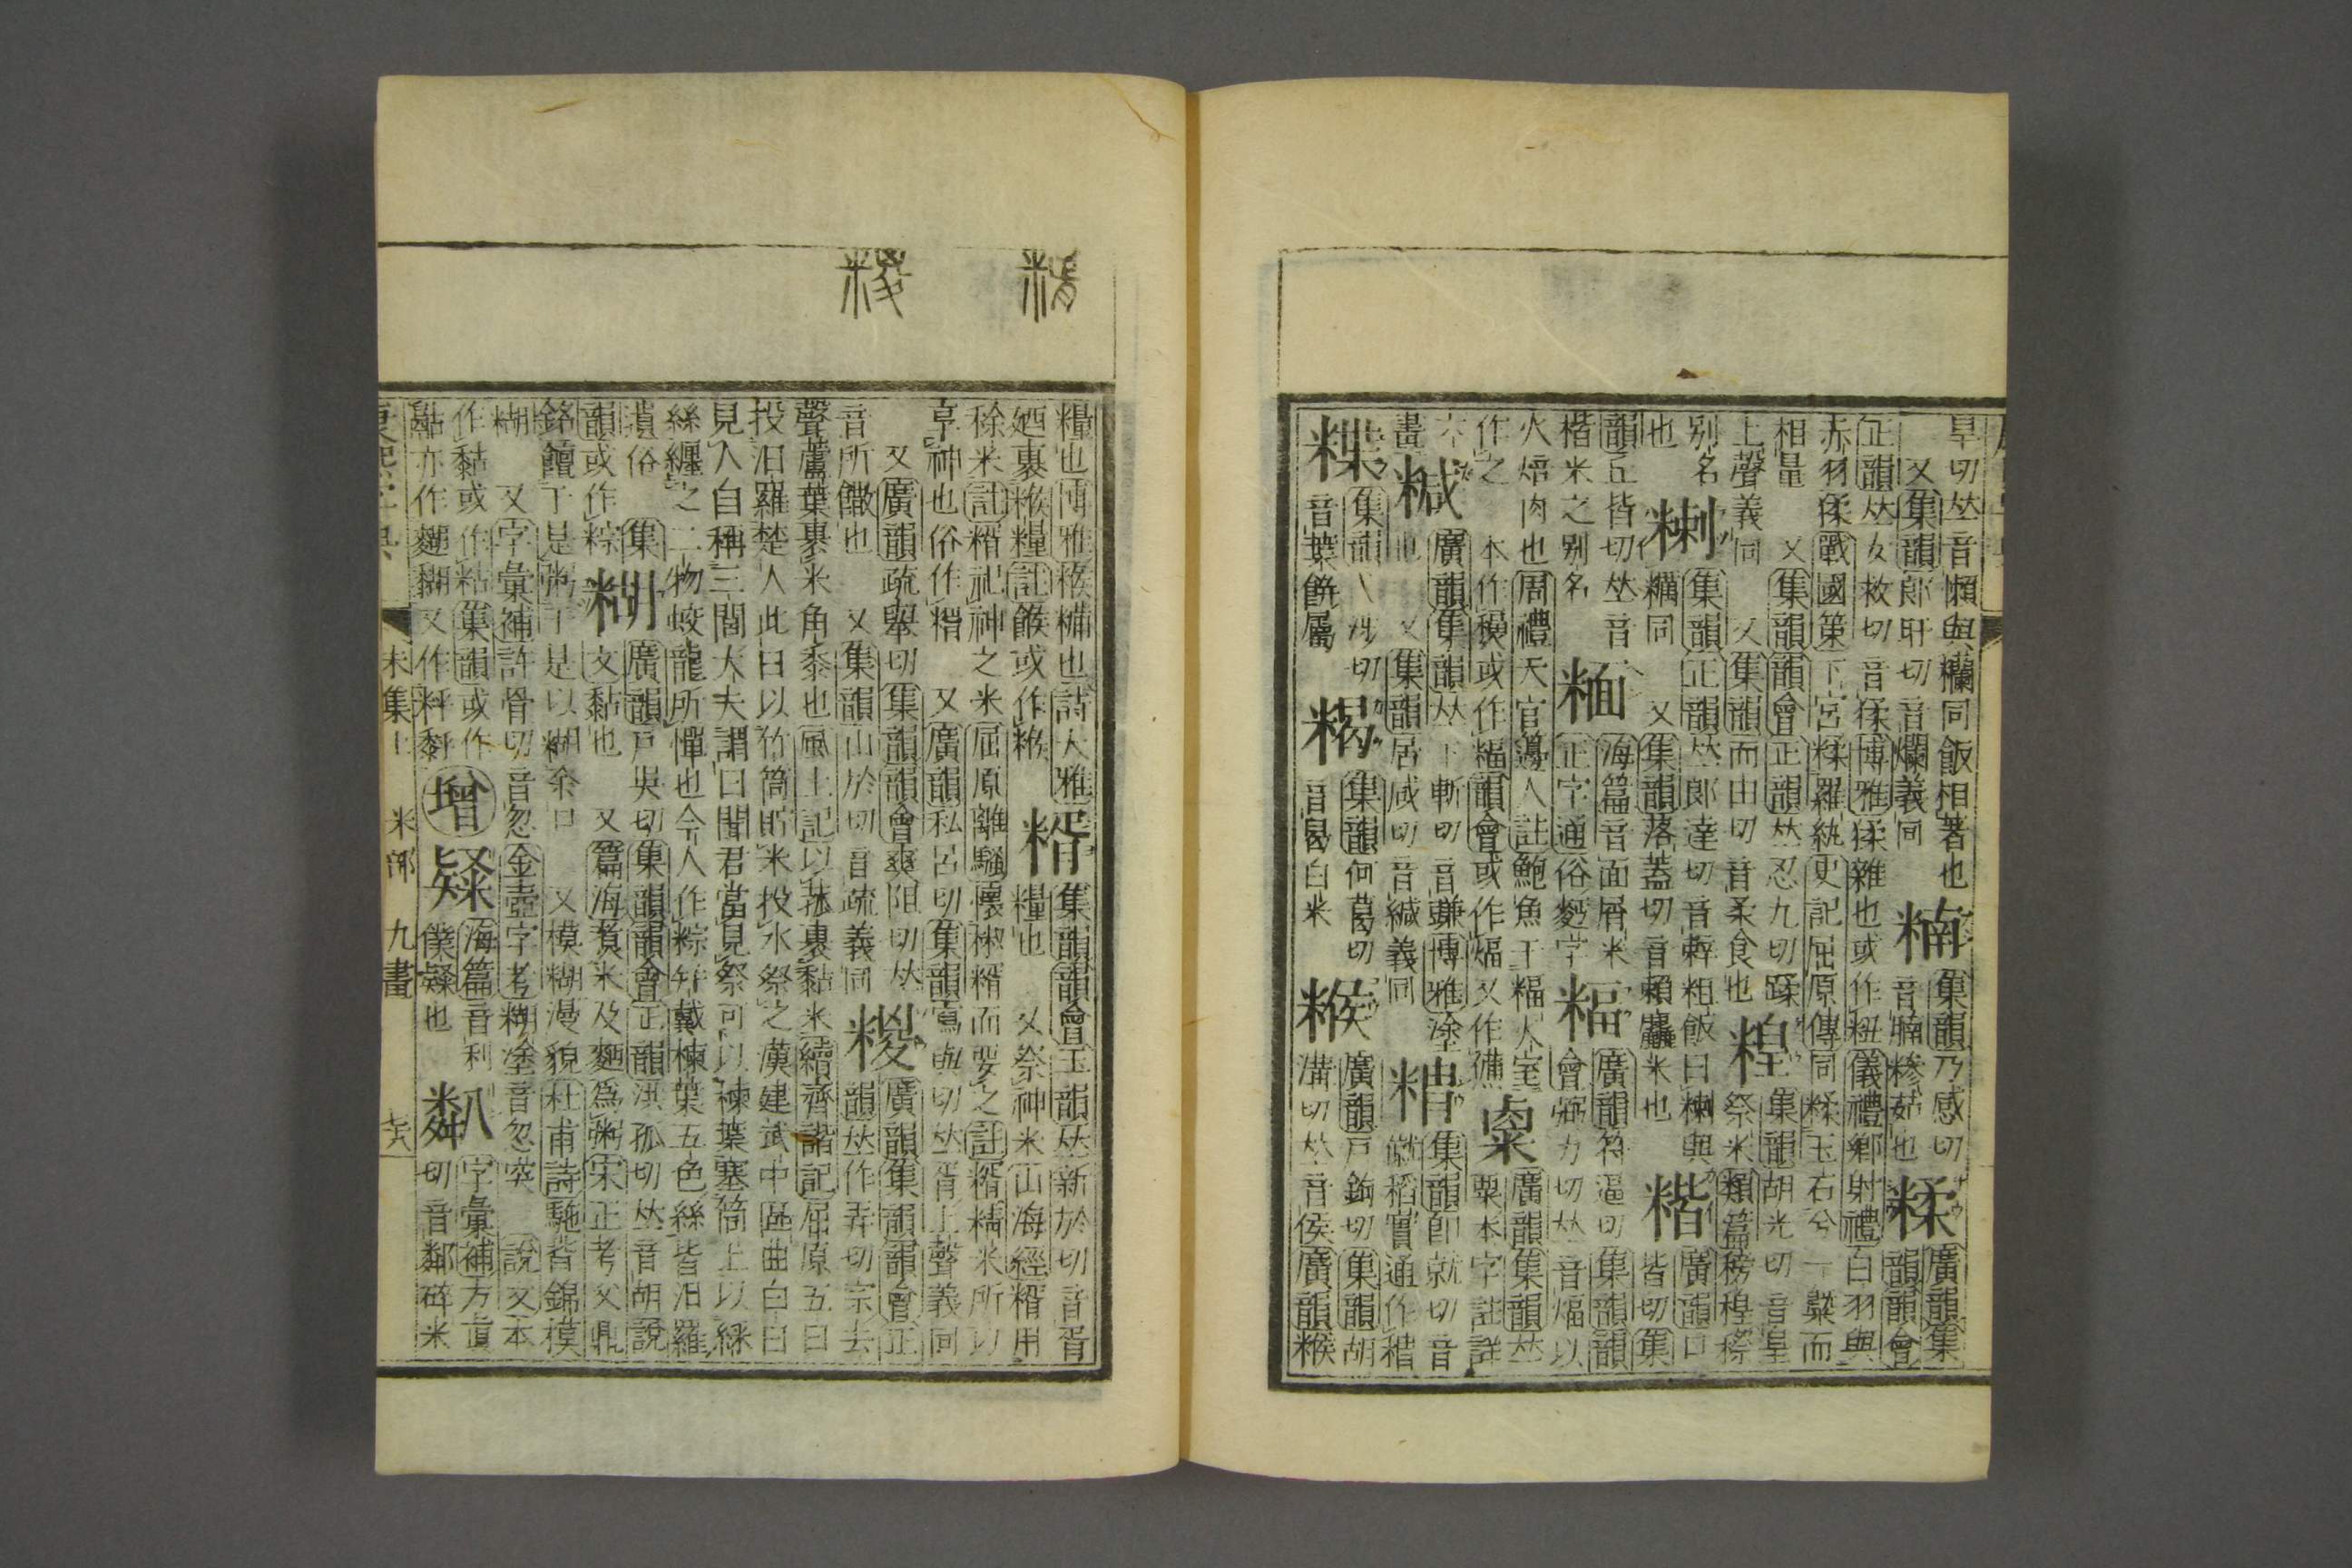 旱切𠀤音懶與糷同飯相著也
又集韻郎旰切音爛義同
䊖
集韻乃感切
音腩糝也
糅
廣韻集
韻韻會
正韻𠀤女救切音猱博雅揉雜也或作粈儀禮鄉射禮白羽與
赤羽揉戰國策下宮糅羅紈史記屈原傳同糅玉石兮一槩而
相量 又集韻韻會正韻𠀤忍九切蹂
上聲義同 又集韻而由切音柔食也
䊗
集韻胡光切音皇
祭米類篇穄
别名
也
集韻正韻𠀤郎達切音辢粗飯曰楋與
糲同 又集韻落蓋切音賴麤米也
廣韻口
皆切集
韻丘皆切𠀤音
楷米之别名
糆
海篇音面屑米
正字通俗麪字
䊎
廣韻符逼切集韻
會弼力切𠀤音煏以
火焙肉也周禮天官籩人註鮑魚于䊎人室
作之 本作或作䊎韻會或作煏又作
廣韻集韻𠀤
粟本字註詳
木
畫
廣韻集韻𠀤下斬切音豏博雅塗
也 又集韻居咸切音緘義同
集韻卽就切音
稻實通作
集韻切
音葉餅屬
集韻何葛切
音曷白米
糇
廣韻戸鉤切集韻胡
溝切𠀤音侯廣韻糇
糈
糉
糧也博雅糇糒也詩大雅
廼裹糇糧註餱或作糇
糈
集韻韻會正韻𠀤新於切音胥
糧也 又祭神米山海經糈用
稌米註糈祀神之米屈原離騷懷椒糈而要之註糈精米所以
享神也俗作糈 又廣韻私呂切集韻寫與切𠀤胥上聲義同
又廣韻疏舉切集韻韻會爽阻切𠀤
音所饊也 又集韻山於切音疏義同
糉
廣韻集韻韻會正
韻𠀤作弄切宗去
聲蘆葉裹米角黍也風土記以菰裹黏米續齊諧記屈原五日
投汨羅楚人此日以竹筒貯米投水祭之漢建武中區曲白日
見人自稱三閭大夫謂曰聞君當見祭可以楝葉塞筒上以綵
絲纏之二物蛟龍所憚也今人作粽幷戴楝葉五色絲皆汨羅
遺俗 集
韻或作粽
糊
廣韻戸吳切集韻韻會正韻洪孤切𠀤音胡說
文黏也 又篇海煑米及麪爲粥宋正考父鼎
銘饘于是粥于是以糊余口 又模糊漫貌杜甫詩駞背錦模
糊 又字彙補許骨切音忽金壺字考糊塗音忽突 說文本
作黏或作粘集韻或作
䴴亦作麵䊀又作䊀䊀
增
海篇音利
䉜也
粼
字彙補方道
切音鄰碎米
康熙字典
未集上 米部 九畫